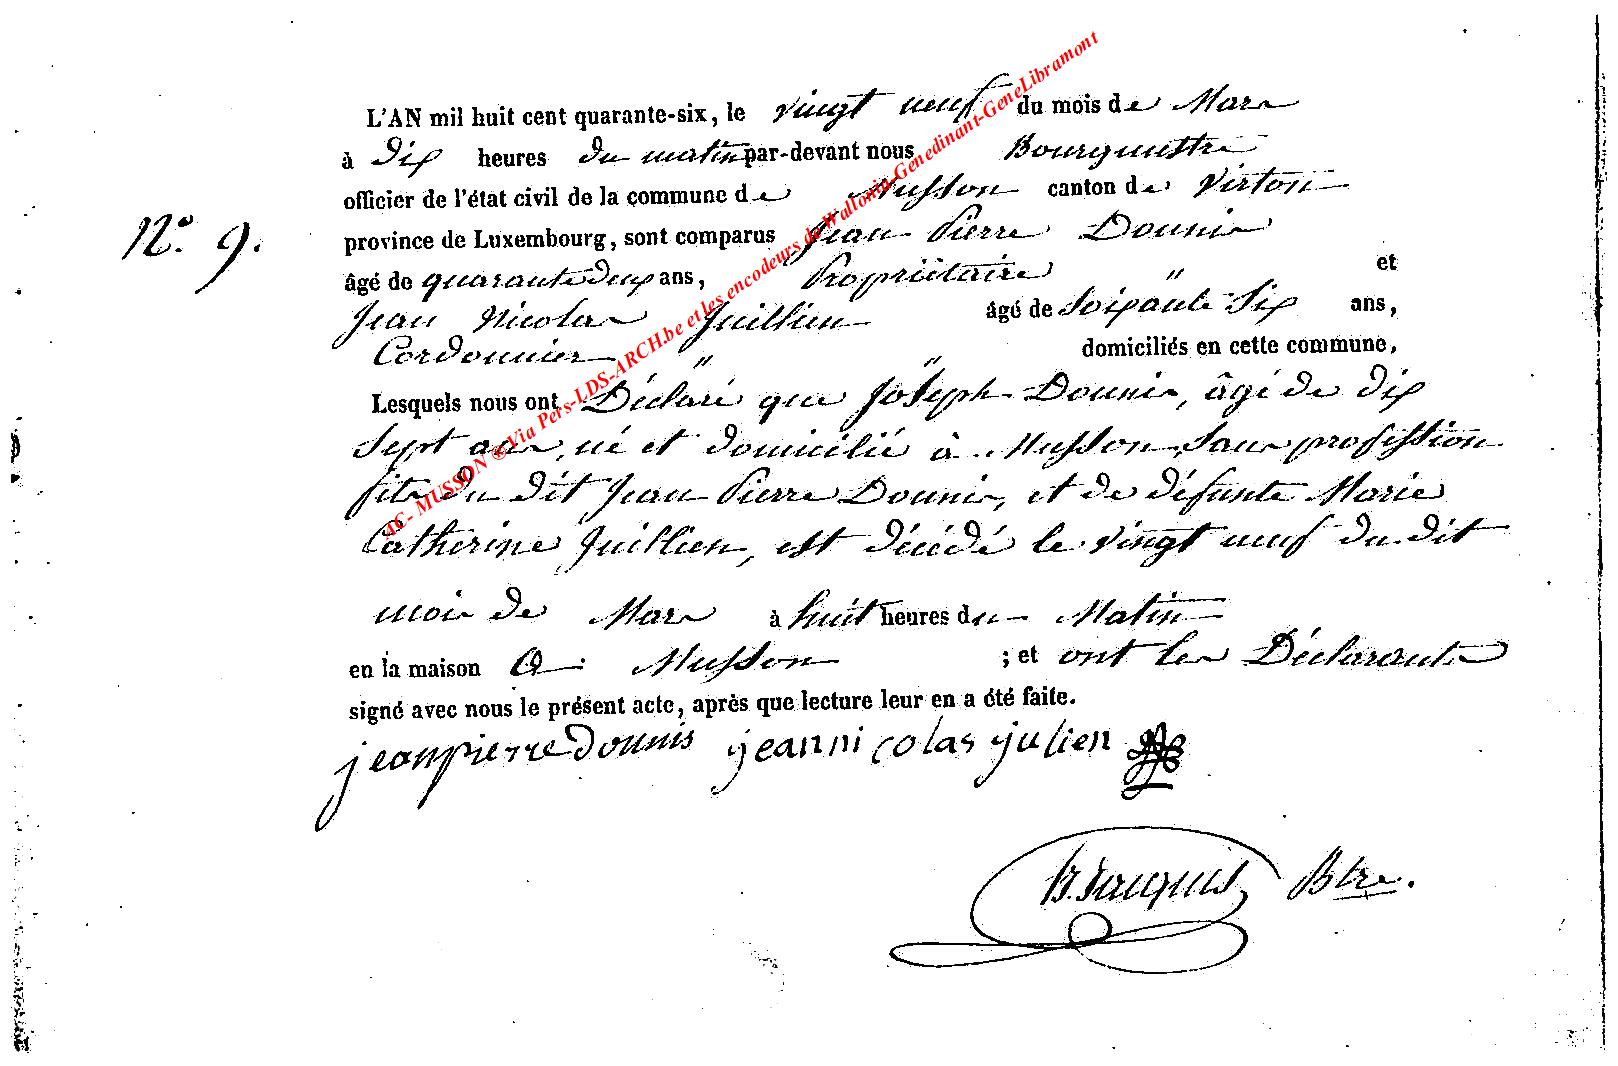 L'AN mil huit cent quarante-six, le vingt neuf du mois de Mars
à dix heures du matin par-devant nous Bourgmestre
officier de l'état civil de la commune de Musson canton de Virton
province de Luxembourg, sont comparus Jean Pierre Dounis
âgé de quarante deux ans, Propriétaire " et
Jean Nicolas Juillien âgé de Soixante Six ans,
Cordonnier " " domiciliés en cette commune,
Lesquels nous ont Déclaré que Joseph Dounis, âgé de dix
Sept ans, né et domicilié à Musson, Sans profession
fils du dit Jean Pierre Dounis, et de défunte Marie
Catherine Juillien, est décédé le vingt neuf du dit
N.o 9.
mois de Mars à huit heures du Matin
en la maison à Musson ; et ont les Déclarants
signé avec nous le présent acte, après que lecture leur en a été faite.
jeanpierre dounis jeannicolas julien
Btre.
AC- MUSSON © Via Pers-LDS-ARCH.be et les encodeurs de Wallonia-Genedinant-GeneLibramont